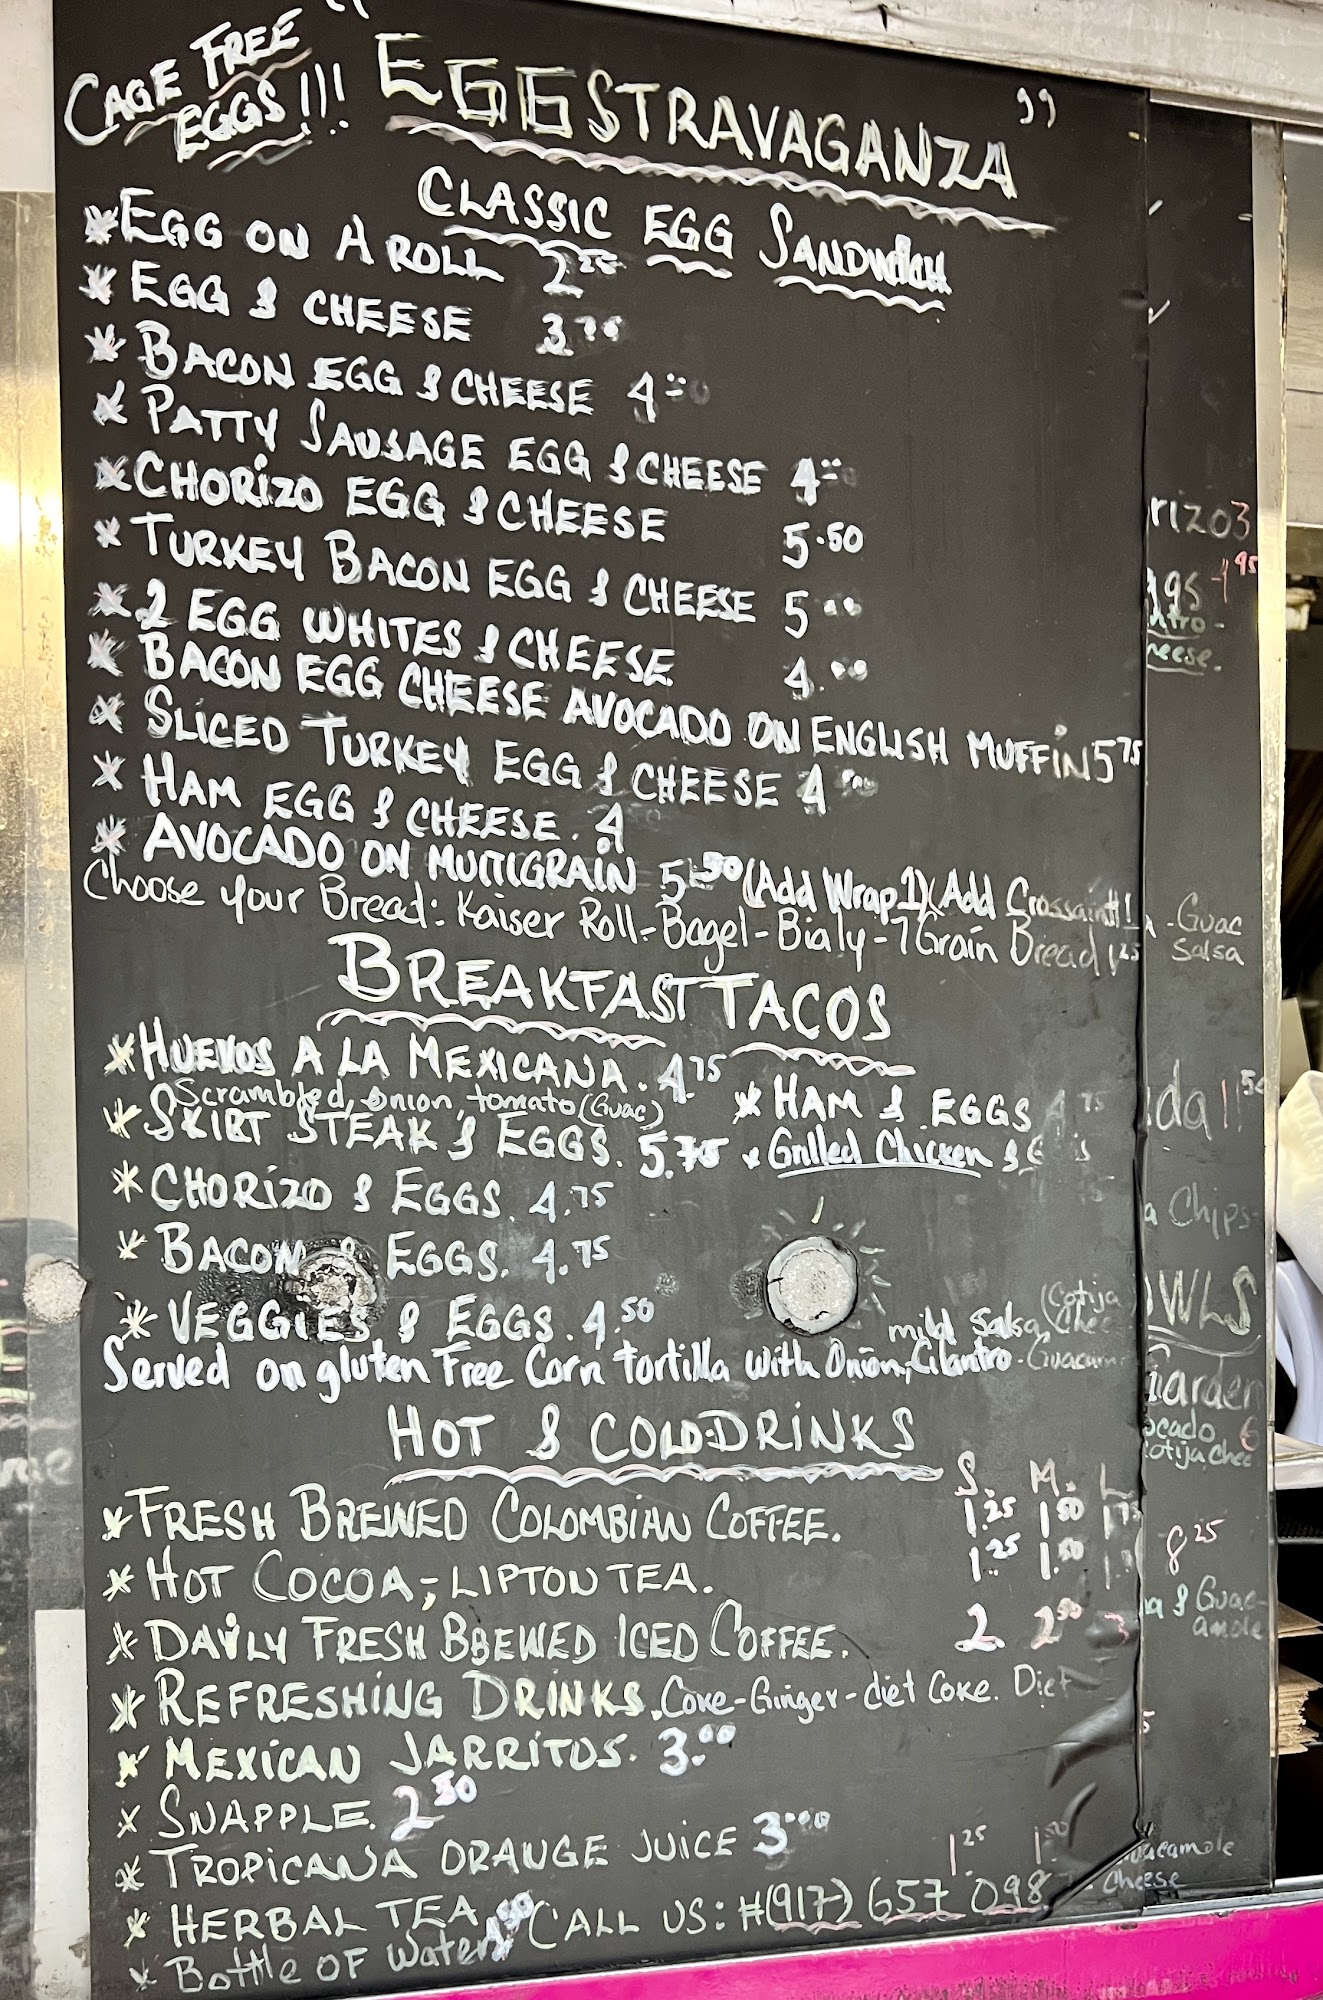 CAGE FREE
EGGS!!!
" EGGSTRAVAGANZA "
CLASSIC EGG SANDWICH
* EGG ON A ROLL 2.25
* EGG & CHEESE 3
* BACON EGG & CHEESE 4
* PATTY SAUSAGE EGG & CHEESE 4
* CHORIZO EGG & CHEESE 5.50
* TURKEY BACON EGG & CHEESE 5.00
* 2 EGG WHITES & CHEESE 4.00
* BACON EGG CHEESE AVOCADO ON ENGLISH MUFFIN 5 75
* SLICED TURKEY EGG & CHEESE 4
* HAM EGG & CHEESE. 4
* AVOCADO ON MULTIGRAIN 5.50 (Add Wrap 1) (Add Crossaint 1
Choose your Bread: Kaiser Roll - Bagel - Bialy - 7 Grain Bread 1.25
BREAKFAST TACOS
* HUEVOS A LA MEXICANA. 4.75
Scrambled, onion, tomato (Guac)
* SKIRT STEAK & EGGS. 5.75
* CHORIZO & EGGS. 4.75
* BACON & EGGS. 4.75
* VEGGIES & EGGS. 4.50
* HAM & EGGS 4.75
* Grilled Chicken &
mild Salsa (Cotija Chee
Served on gluten Free Corn tortilla with Onion, Cilantro - Guacam
HOT & COLD DRINKS
S. M. L
* FRESH BREWED COLOMBIAN COFFEE. 1.25 1.50 1.75
* HOT COCOA; LIPTON TEA. 1.25 1.50 1
* DAILY FRESH BREWED ICED COFFEE. 2. 2.50 3
* REFRESHING DRINKS. Coke - Ginger - diet Coke. Diet
* MEXICAN JARRITOS. 3.00
* SNAPPLE. 2.50
* TROPICANA ORANGE JUICE 3.00
* HERBAL TEA 1.25 1.50
* Bottle OF Water 1.50
CALL US: #(917) 657 098
rizo 3
ntro -
heese.
- Guac
Salsa
da 11 50
a Chips
WLS
Garden
ocado 6
Cotija, Chee
8 25
a & Guac-
amole
uacamole
Cheese